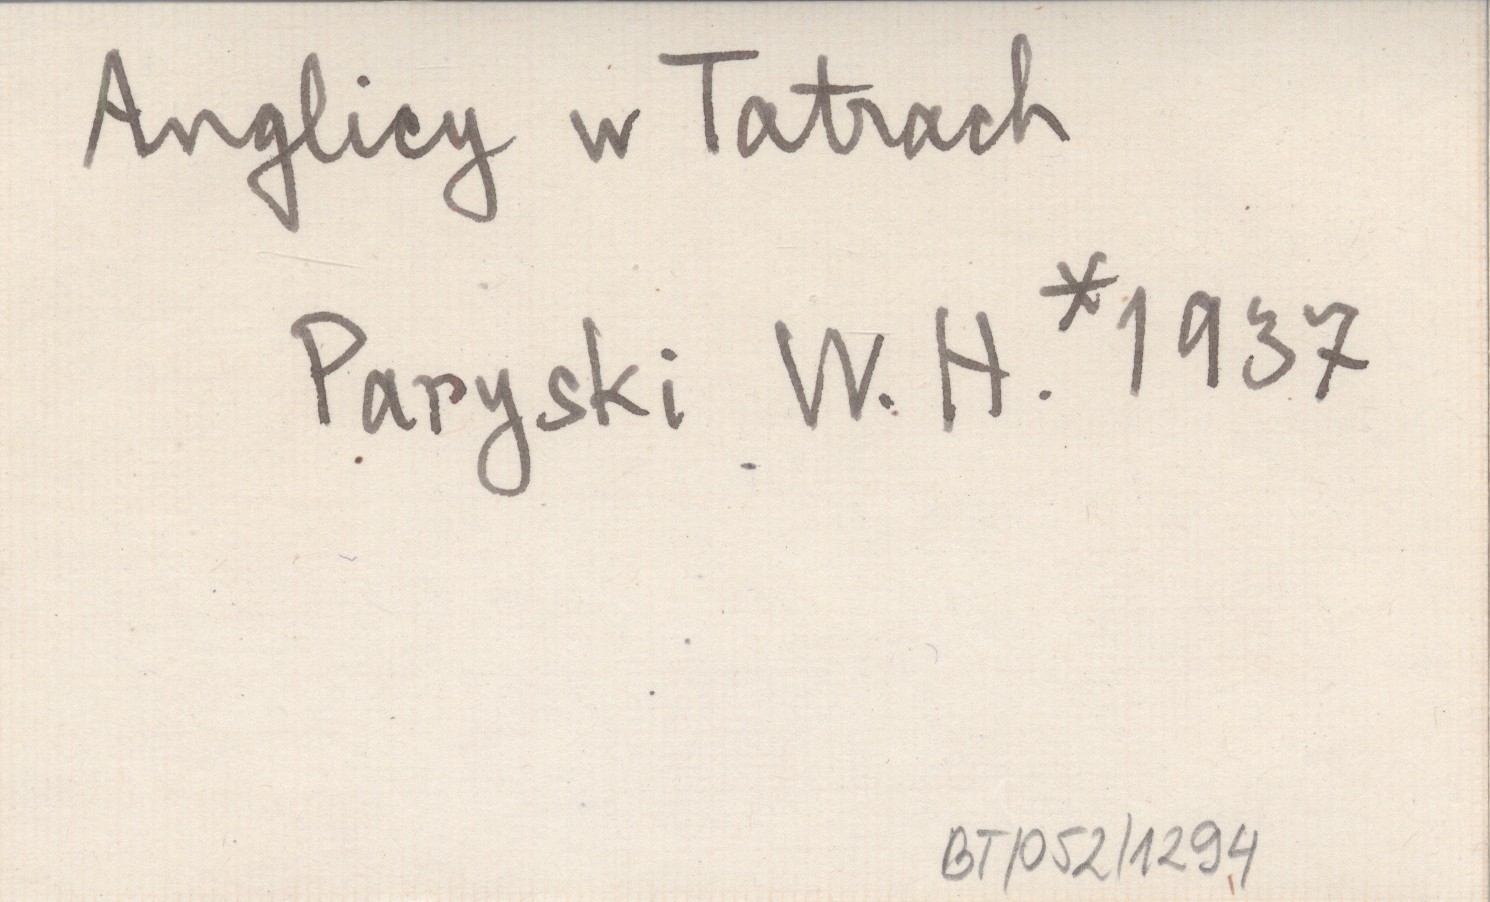 Anglicy w Tatrach
Paryski W. H. *1937
BT/052/1294